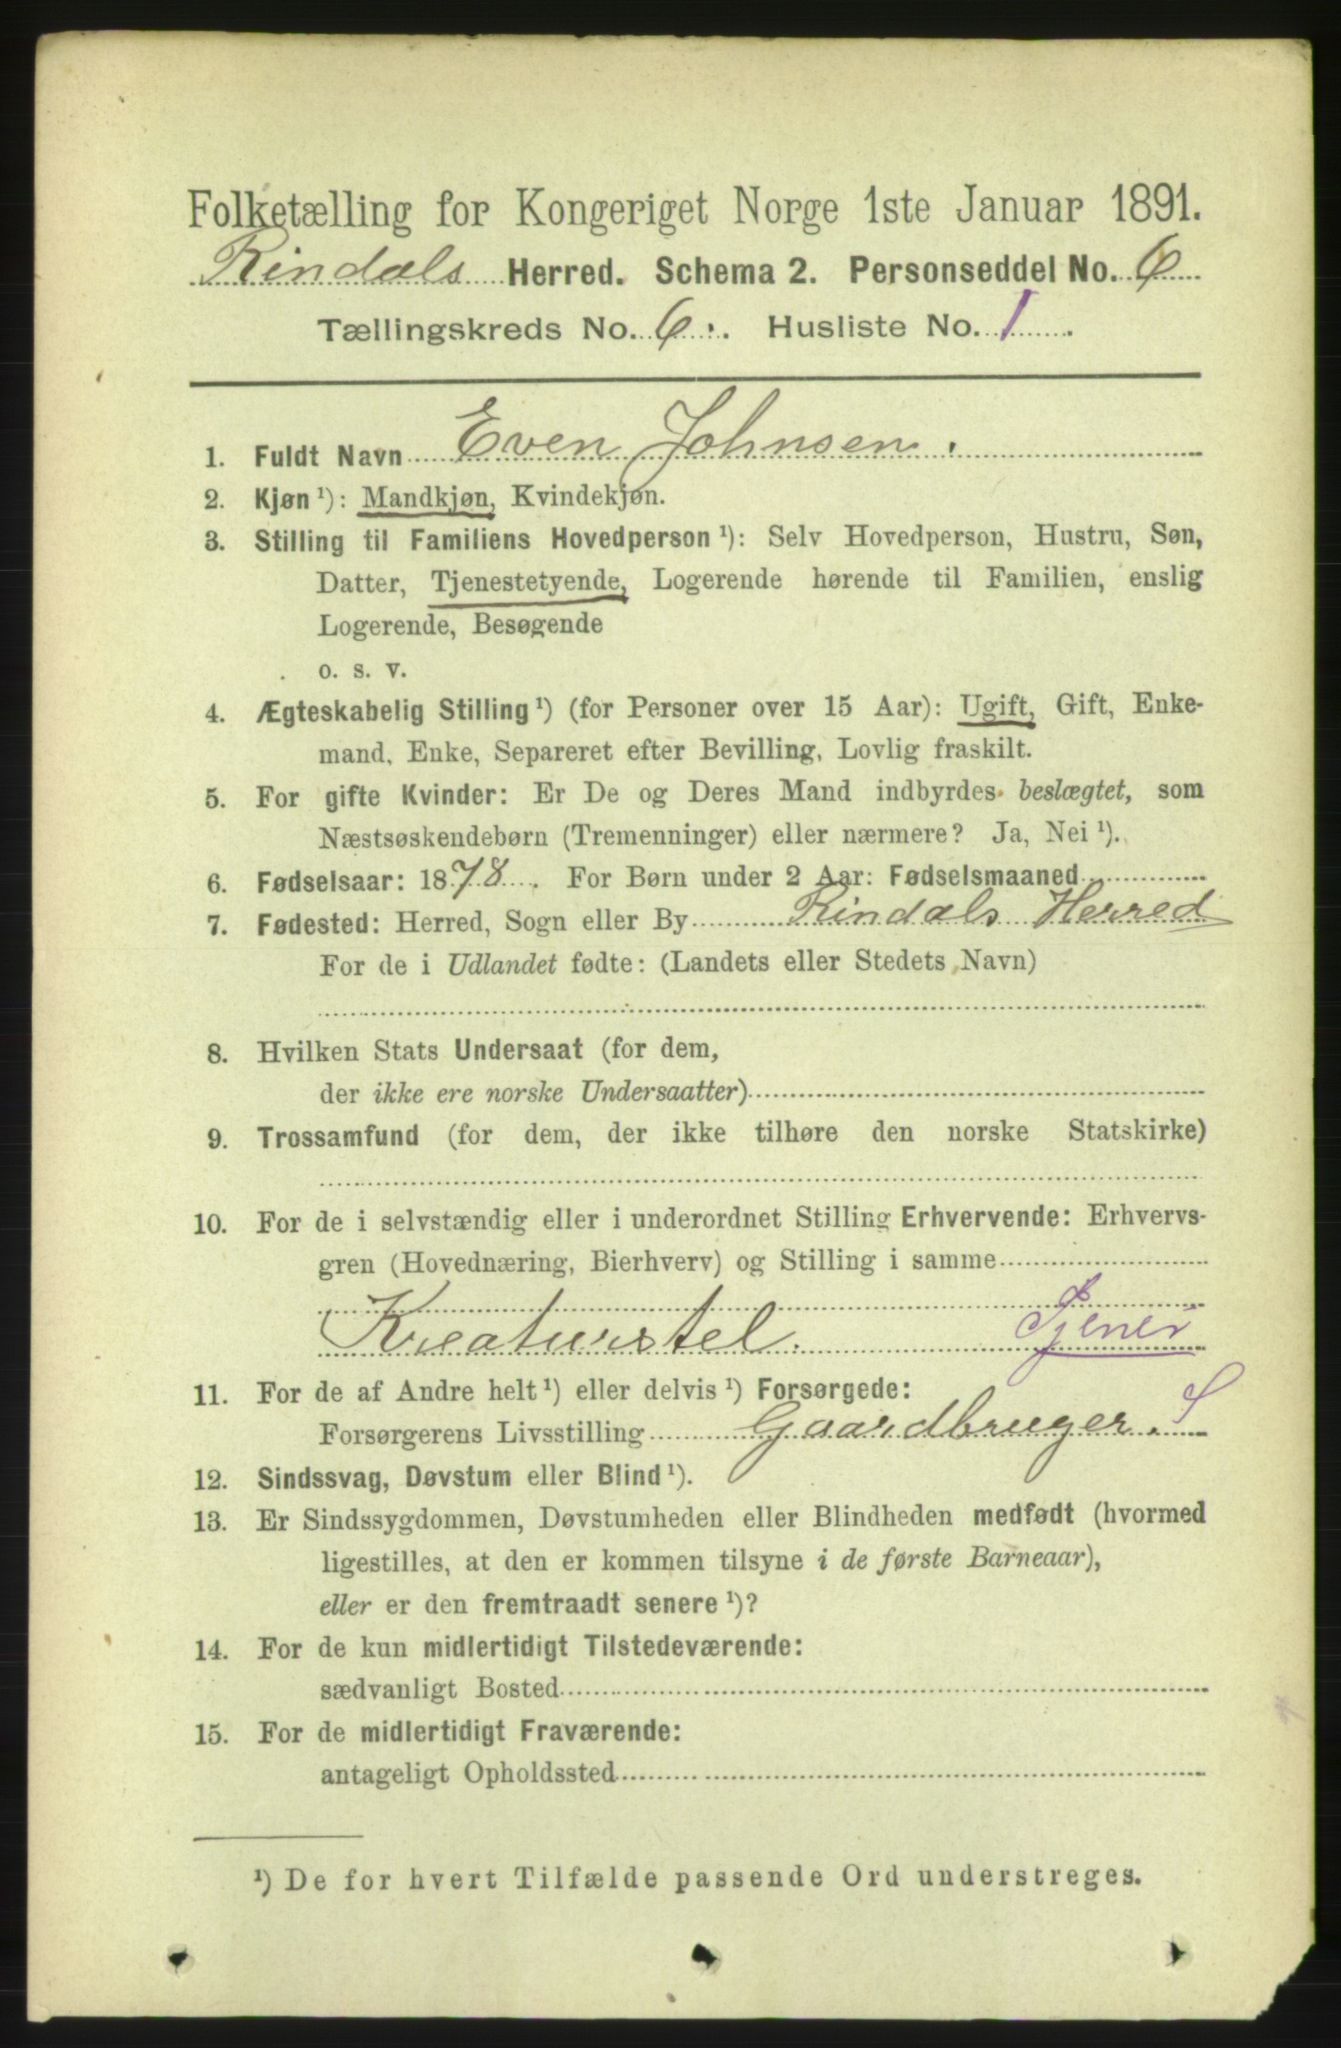 Folketælling for Kongeriget Norge 1ste Januar 1891.
Rindals Herred. Schema 2. Personseddel No. 6
Tællingskreds No. 6. Husliste No. 1.
1. Fuldt Navn Even Johnsen.
2. Kjøn ¹): Mandkjøn, Kvindekjøn.
3. Stilling til Familiens Hovedperson ¹): Selv Hovedperson, Hustru, Søn,
Datter, Tjenestetyende, Logerende hørende til Familien, enslig
Logerende, Besøgende
o. s. v.
4. Ægteskabelig Stilling ¹) (for Personer over 15 Aar): Ugift, Gift, Enke-
mand, Enke, Separeret efter Bevilling, Lovlig fraskilt.
5. For gifte Kvinder: Er De og Deres Mand indbyrdes beslægtet, som
Næstsøskendebørn (Tremenninger) eller nærmere? Ja, Nei ¹).
6. Fødselsaar: 1878. For Børn under 2 Aar: Fødselsmaaned
7. Fødested: Herred, Sogn eller By Rindals Herred
For de i Udlandet fødte: (Landets eller Stedets Navn)
8. Hvilken Stats Undersaat (for dem,
der ikke ere norske Undersaatter)
9. Trossamfund (for dem, der ikke tilhøre den norske Statskirke)
10. For de i selvstændig eller i underordnet Stilling Erhvervende: Erhvervs-
gren (Hovednæring, Bierhverv) og Stilling i samme
Kreaturstel. Tjener
11. For de af Andre helt ¹) eller delvis ¹) Forsørgede:
Forsørgerens Livsstilling Gaardbruger. S
12. Sindssvag, Døvstum eller Blind ¹).
13. Er Sindssygdommen, Døvstumheden eller Blindheden medfødt (hvormed
ligestilles, at den er kommen tilsyne i de første Barneaar),
eller er den fremtraadt senere ¹)?
14. For de kun midlertidigt Tilstedeværende:
sædvanligt Bosted
15. For de midlertidigt Fraværende:
antageligt Opholdssted
¹) De for hvert Tilfælde passende Ord understreges.